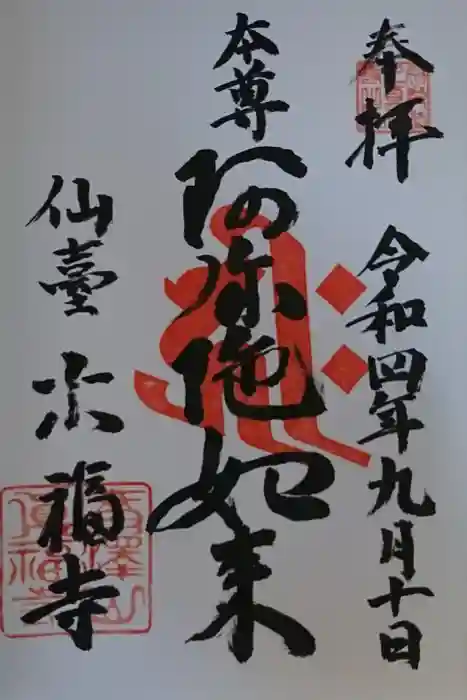 奉拝
令和四年九月十日
本尊
阿弥陀如来
仙臺
福寺